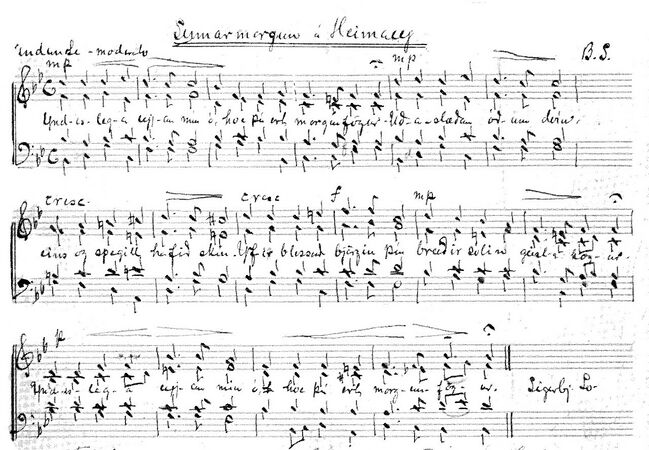 Sumarmorgun á Heimaey
Andante - moderato mp mp B.S.
Ynd-is-leg-a eyj-an mín ó, hve þú ert morgunfögur. Úð-a-slæðan óð-um dvín,
cresc. cresc f mp
eins og spegill hafið skín. Yf-ir blessuð björgin þín breiðir sólin
p
Ynd-is-leg-a eyj-an mín ó, hve þú ert morg-un-fög-ur. Sigurbj.